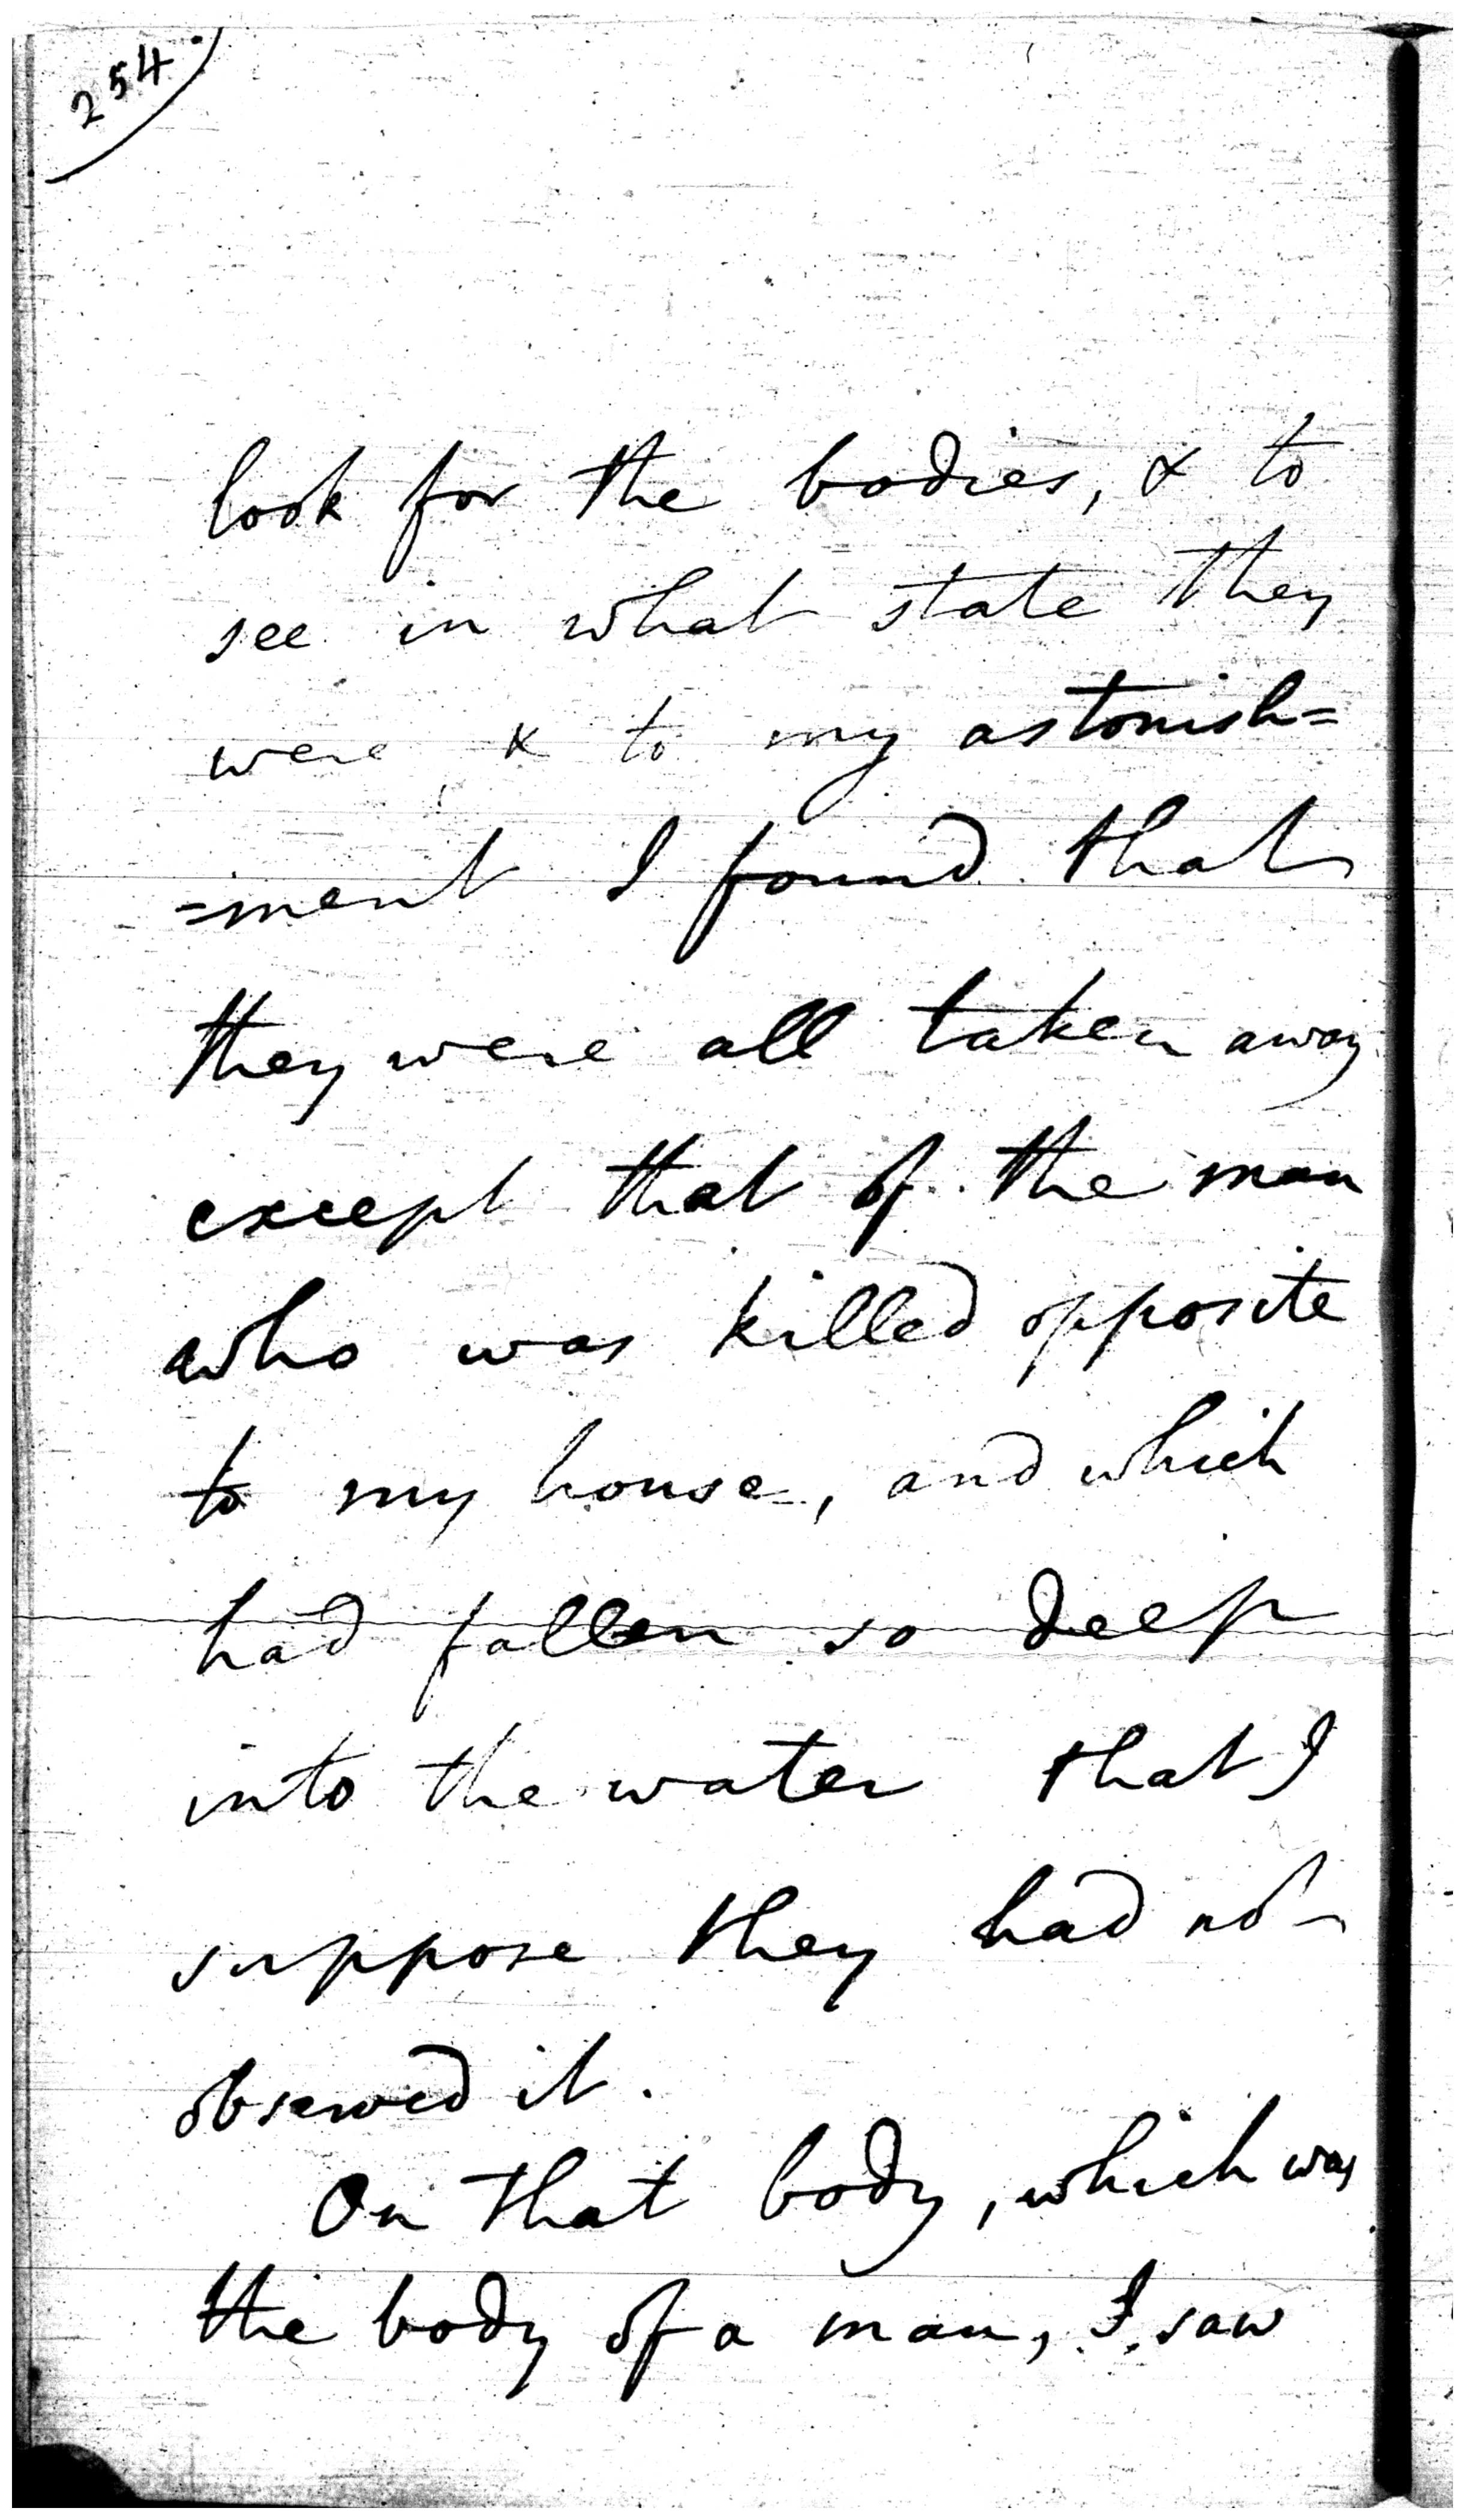 254
look for the bodies, & to
see in what state they
were, & to my astonish=
=ment I found that
they were all taken away
except that of the man
who was killed opposite
to my house, and which
had fallen so deep
into the water that I
suppose they had not
observed it.
On that body, which was
the body of a man, I saw